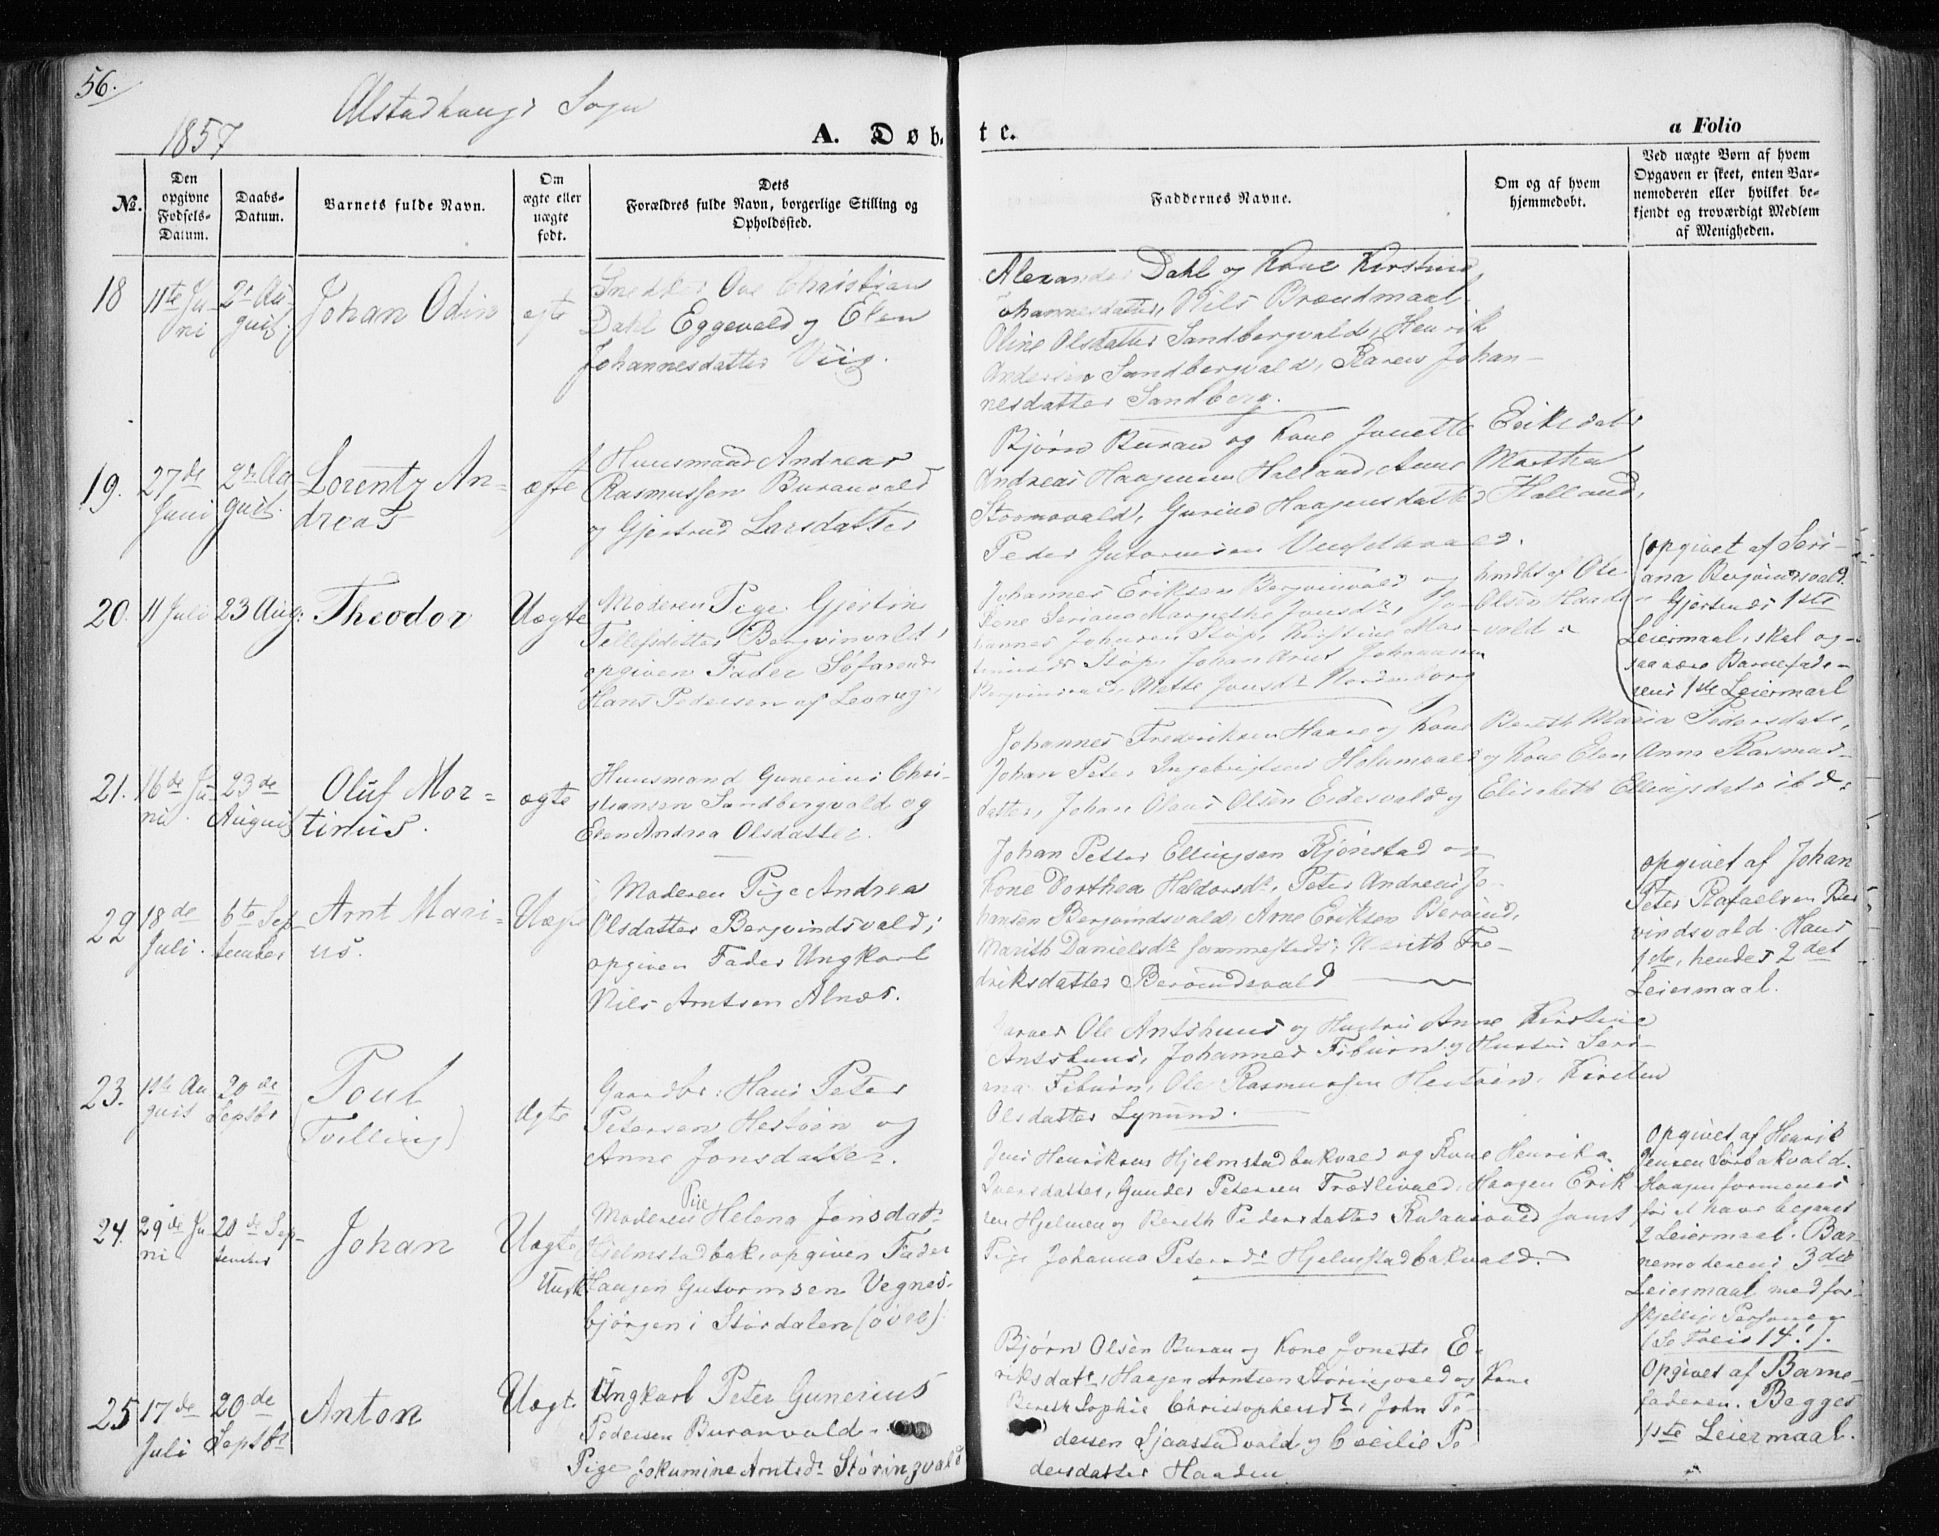 56.
Alstadhaugs Sogn
1857
A. Døb-
te.
a Folio
No.
Den
opgivne
Fødsels-
Datum.
Daabs-
Datum.
Barnets fulde Navn.
Om
ægte eller
uægte
født.
Dets
Forældres fulde Navn, borgerlige Stilling og
Opholdssted.
Faddernes Navne.
Om og af hvem
hjemmedøbt.
Ved uægte Børn af hvem
Opgaven er skeet, enten Bar-
nemoderen eller hvilket be-
kjendt og troværdigt Medlem
af Menigheden.
18
11te Ju-
ni
2den Au-
gust.
Johan Odin
ægte
Snekker Ove Christian
Dahl Eggevald og Elen
Johannesdatter Viig.
Alexander Dahl og Kone Kirstine
Johannesdatter, Nils Brændmaal
Oline Olsdatter Sandbergvald, Henrik
Andersen Sandbergvald, Karen Johan-
nesdatter Sandberg.
19.
27de
Juni
2den Au-
gust.
Lorentz An-
dreas
ægte
Huusmand Andreas
Rasmussen Buranvald
og Gjertrud Larsdatter
Bjørn Buran og Kone Jonette Eriksdatr
Andreas Haagensen Halland, Anne Martha
Gurine Haagensdatter Halland,
Peder Gutormsen
20.
11 Juli
23 Aug:
Theodor
Uægte
Moderen Pige Gjertine
Tellefsdatter Bergvinvald,
opgiven Fader Søfarende
Hans Pedersen af Levang.
Johannes Eriksen Bergvinvald og
Kone Seriane Margrethe Jonsdr, Jo-
hannes Johnsen Støp, Kirstine Mar-
Støp, Johan Arnt Johnsen
Mette Jonsdr Nordenborg
hmdbt af Ole
Olsen Haade
vald
opgivet af Seri-
ana Bergvinsvald.
Gjertines 1ste
Leiermaal, skal og-
saa være Barnefade-
rens 1ste Leiermaal
21.
16de Ju-
ni.
23de
August
Oluf Mor-
tinus.
ægte
Huusmand Gunerius Chri-
stiansen Sandbergvald og
Elen Andrea Olsdatter.
Johannes Frederiksen Haave og Kone Bereth Maria Pedersdatr,
Johan Peter Ingebrigtsen Holumvald og Kone Elen Anna Rasmus-
datter, Johan Olaus Olsen Eidesvald og Elisabeth Ellingsdatr ibd.
22
18de
Juli.
6te Sep-
tember
Arnt Mari-
us.
Uægte
Moderen Pige Andrea
Olsdatter Bergvindsvald;
opgiven Fader Ungkarl
Nils Arntsen Alnæs.
Johan Petter Ellingsen Rjønstad og
Kone Dorthea Haldorsdr, Peter Andreas Jo-
hansen Bergvindsvald, Arne Eriksen
Marith Danielsdr sammesteds, Marith Fre-
driksdatter
opgivet af Johan
Peter Rafaelsen Ber
vindsvald. Hans
1ste, hendes 2det
Leiermaal.
23.
1ste Au
gust
20de
Septbr
Poul
(Tvilling)
Ægte
Gaardbr: Hans Peter
Petersen Hestøen og
Anne Jonsdatter.
Ole Antshuus og Hustru Anne Kirstine
Antshuus, Johannes Fiburn og Hustru Seri-
na Fiburn, Ole Rasmussen Hestøen, Kirsten
Olsdatter Lynum.
24.
29de Ju
ni
20de Sep-
tember
Johan
Uægte
Pige
Moderen Helena Jonsdatr
Hjelmstadbak, opgiven Fader
Ungk Haagen Gutormsen Vegnes-
bjørgen i Stördalen (øvre)
Jens Henriksen Hjelmstadbakvald og Kone Henrika
Iversdatter, Gunder Petersen Trætlivald, Haagen Erik
sen Hjelmen og Bereth Pedersdatter samt
Pige Johanna Petersdr Hjelmstadbakvald.
Opgivet af Henrik
Jensen Sørbakvald.
Haagen formenes
før at have begaaet
2 Leiermaal. Bar
nemoderens 3die
Leiermaal med for-
skjellige Personer
(Se Folio 14.)
25
17de
Juli
20de
Septbr
Anton
Uægte
Ungkarl Peter Gunerius
Pedersen Buranvald.
Pige Jokumine Arntsdr Störingvald
Bjørn Olsen Buran og Kone Jonette E-
riksdatr, Haagen Arntsen Störingvald og Kone
Bereth Sophie Christophersdr, John Pe-
dersen Sjaastadvald og Cecilie Pe-
dersdatter Haaden
Opgivet af Barne-
faderen. Begges
1ste Leiermaal.